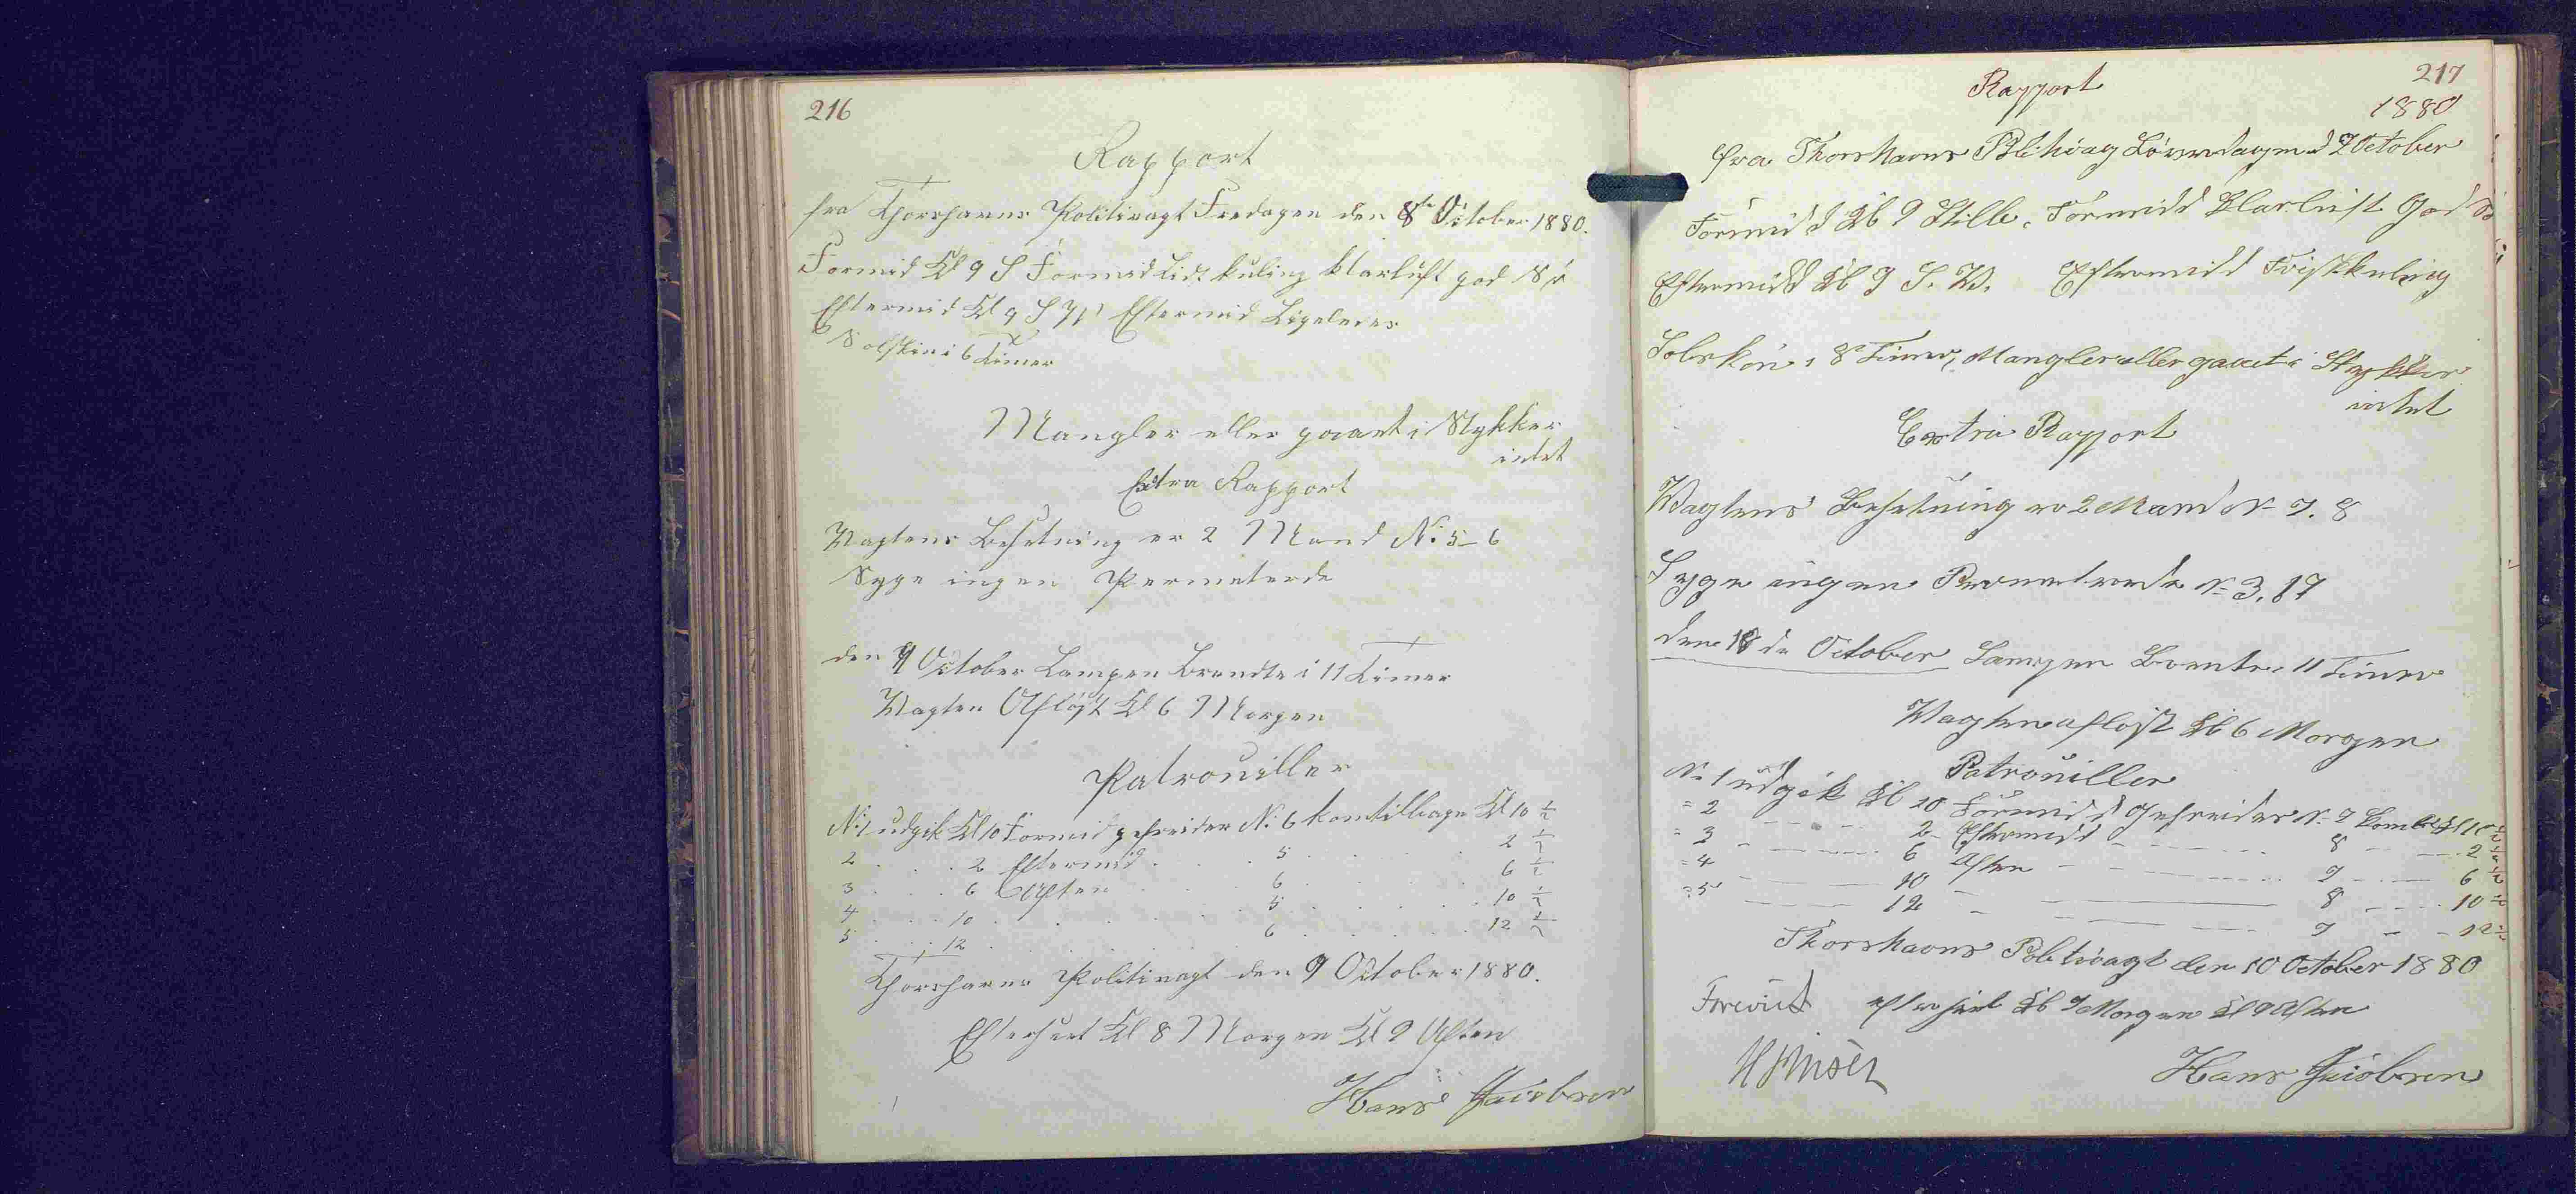 216
Rapport
fra Thorshavns Politivagt Fredagen den 8de October 1880.
Formid Kl 9 S Formid Lidt kuling klarluft god Sigt
Eftermid Kl 9 S W Eftermid Ligeledes
Solskin i 6 Timer
Mangler eller gaaet i Stykker
intet
Extra Rapport
Vagtens Besetning er 2 Mand No 5-6
Syge ingen Permeterede
den 9 October Lampen Brendte i 11 Timer
Vagten Afløst Kl 6 Morgen
Patrouiller
No 1 udgik Kl 10 Formid gefreider No 6 kom tilbage Kl 10 1/2
2 . . . 2 Eftermid . . 5 . . . 2 1/2
3 . . . 6 Aften . . 6 . . . 6 1/2
4 . . . 10 . . . 5 . . . 10 1/2
5 . . . 12 . . . 6 . . . 12 1/2
Thorshavns Politivagt den 9 October 1880.
Efterseet Kl 8 Morgen Kl 9 Aften
Hans Jacobsen
217
Rapport
1880
fra Thorshavns Politivag Løverdagen d 9 October
Formidd Kl 9 Stille. Formidd Klarluft God
Eftermidd Kl 9 S. W. Eftermidd Friskkuling
Solskin i 8 Timer, Mangler eller gaaet i Stykker
intet
Extra Rapport
Wagtens Besetning er 2 Mand No 7. 8
Syge ingen Permeterede No 3. 17
den 10 de October Lampen Brente i 11 Timer
Wagten afløst Kl 6 Morgen
Patrouiller
No 1 udgik Kl 10 Formidd Gefreider No 7 Kom tb Kl 10 1/2
= 2 - - - 2 - Eftermidd - - - 8 - - 2 1/2
= 3 - - - 6 Aften - - - 7 - - 6 1/2
= 4 - - - 10 - - - 8 - - 10 1/2
= 5 - - - 12 - - - 7 - - 12 1/2
Thorshavns Politivagt den 10 October 1880
Forevist efterseet Kl 7 Morgen Kl 9 Aften
Hans Jacobsen